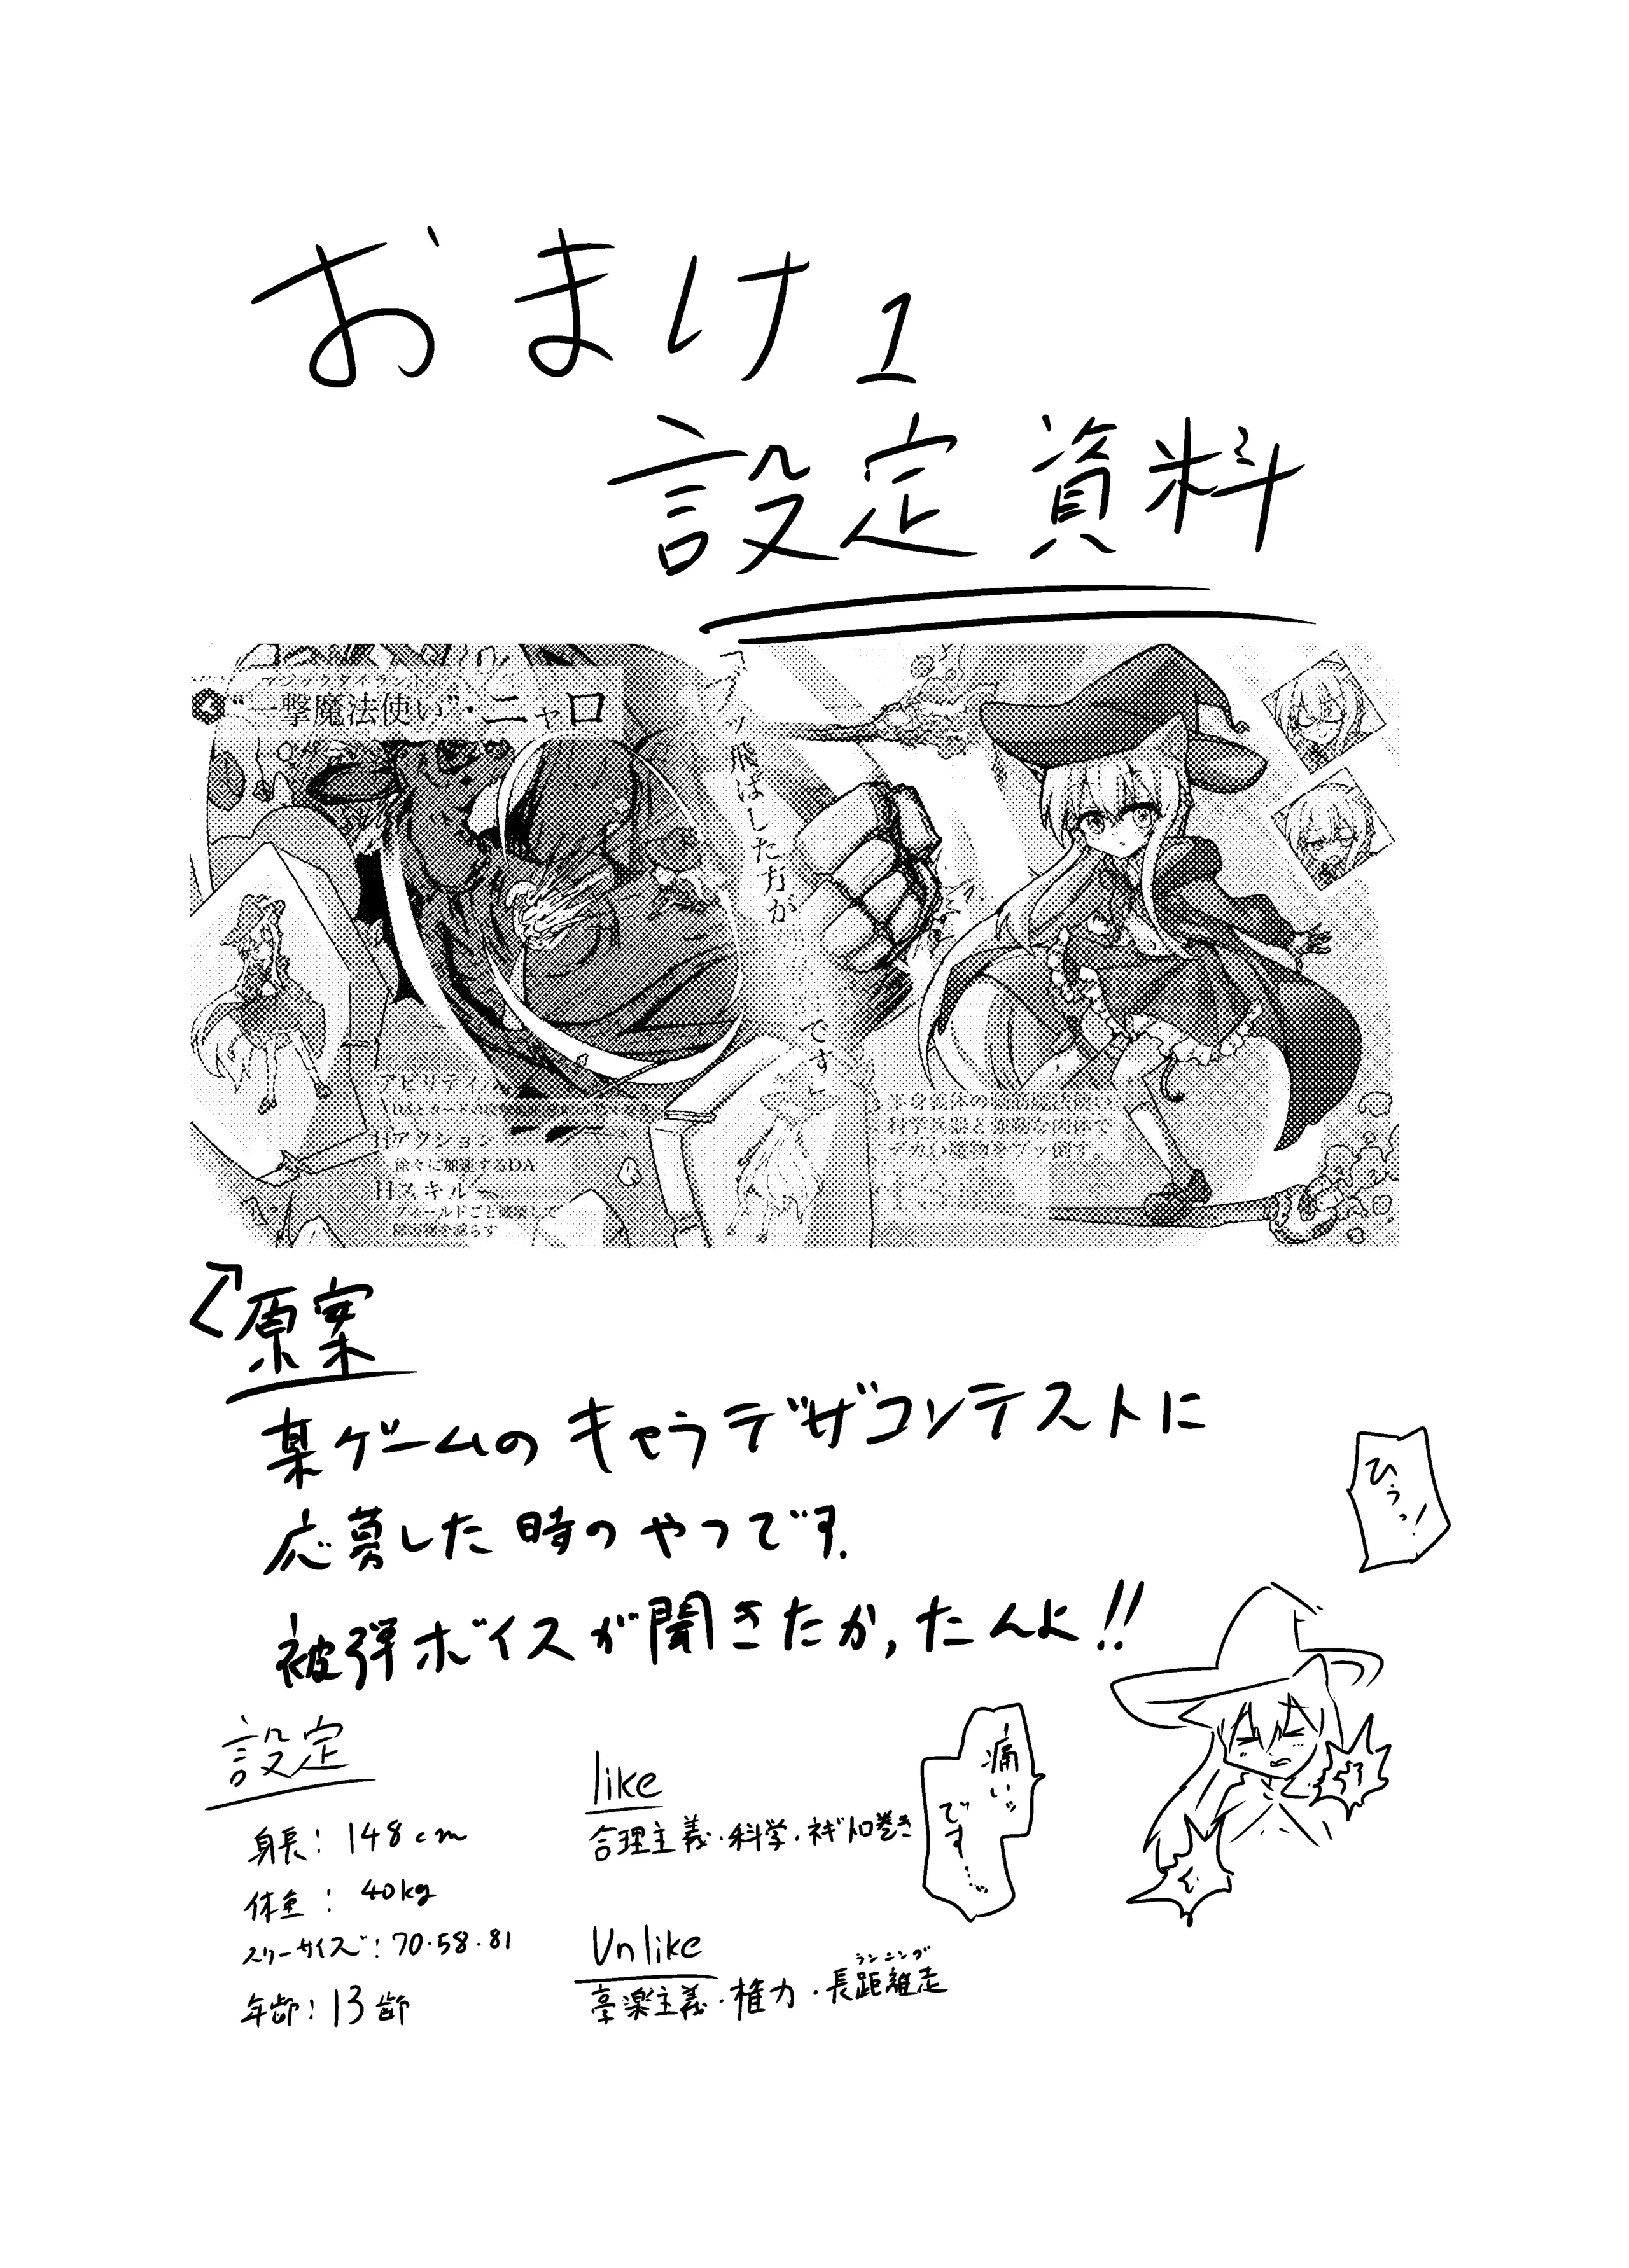 おまけ1
設定資料
マジックダイラント
"一撃魔法使い"・ニャロ
ッ飛ばした方が
ですよ
アビリティ
Hアクション
徐々に加速するDA
Hスキル
フィールドごと破壊して
障害物を減らす
科学兵器と強靭な肉体で
デカい魔物をブッ倒す。
原案
某ゲームのキャラデザコンテストに
応募した時のやつです.
被弾ボイスが聞きたかったんよ!!
ひぅっ!
設定
身長: 148cm
体重: 40kg
スリーサイズ: 70・58・81
年齢: 13齢
like
合理主義・科学・ネギトロ巻き
Unlike
享楽主義・権力・長距離走
ランニング
痛いッ
です…